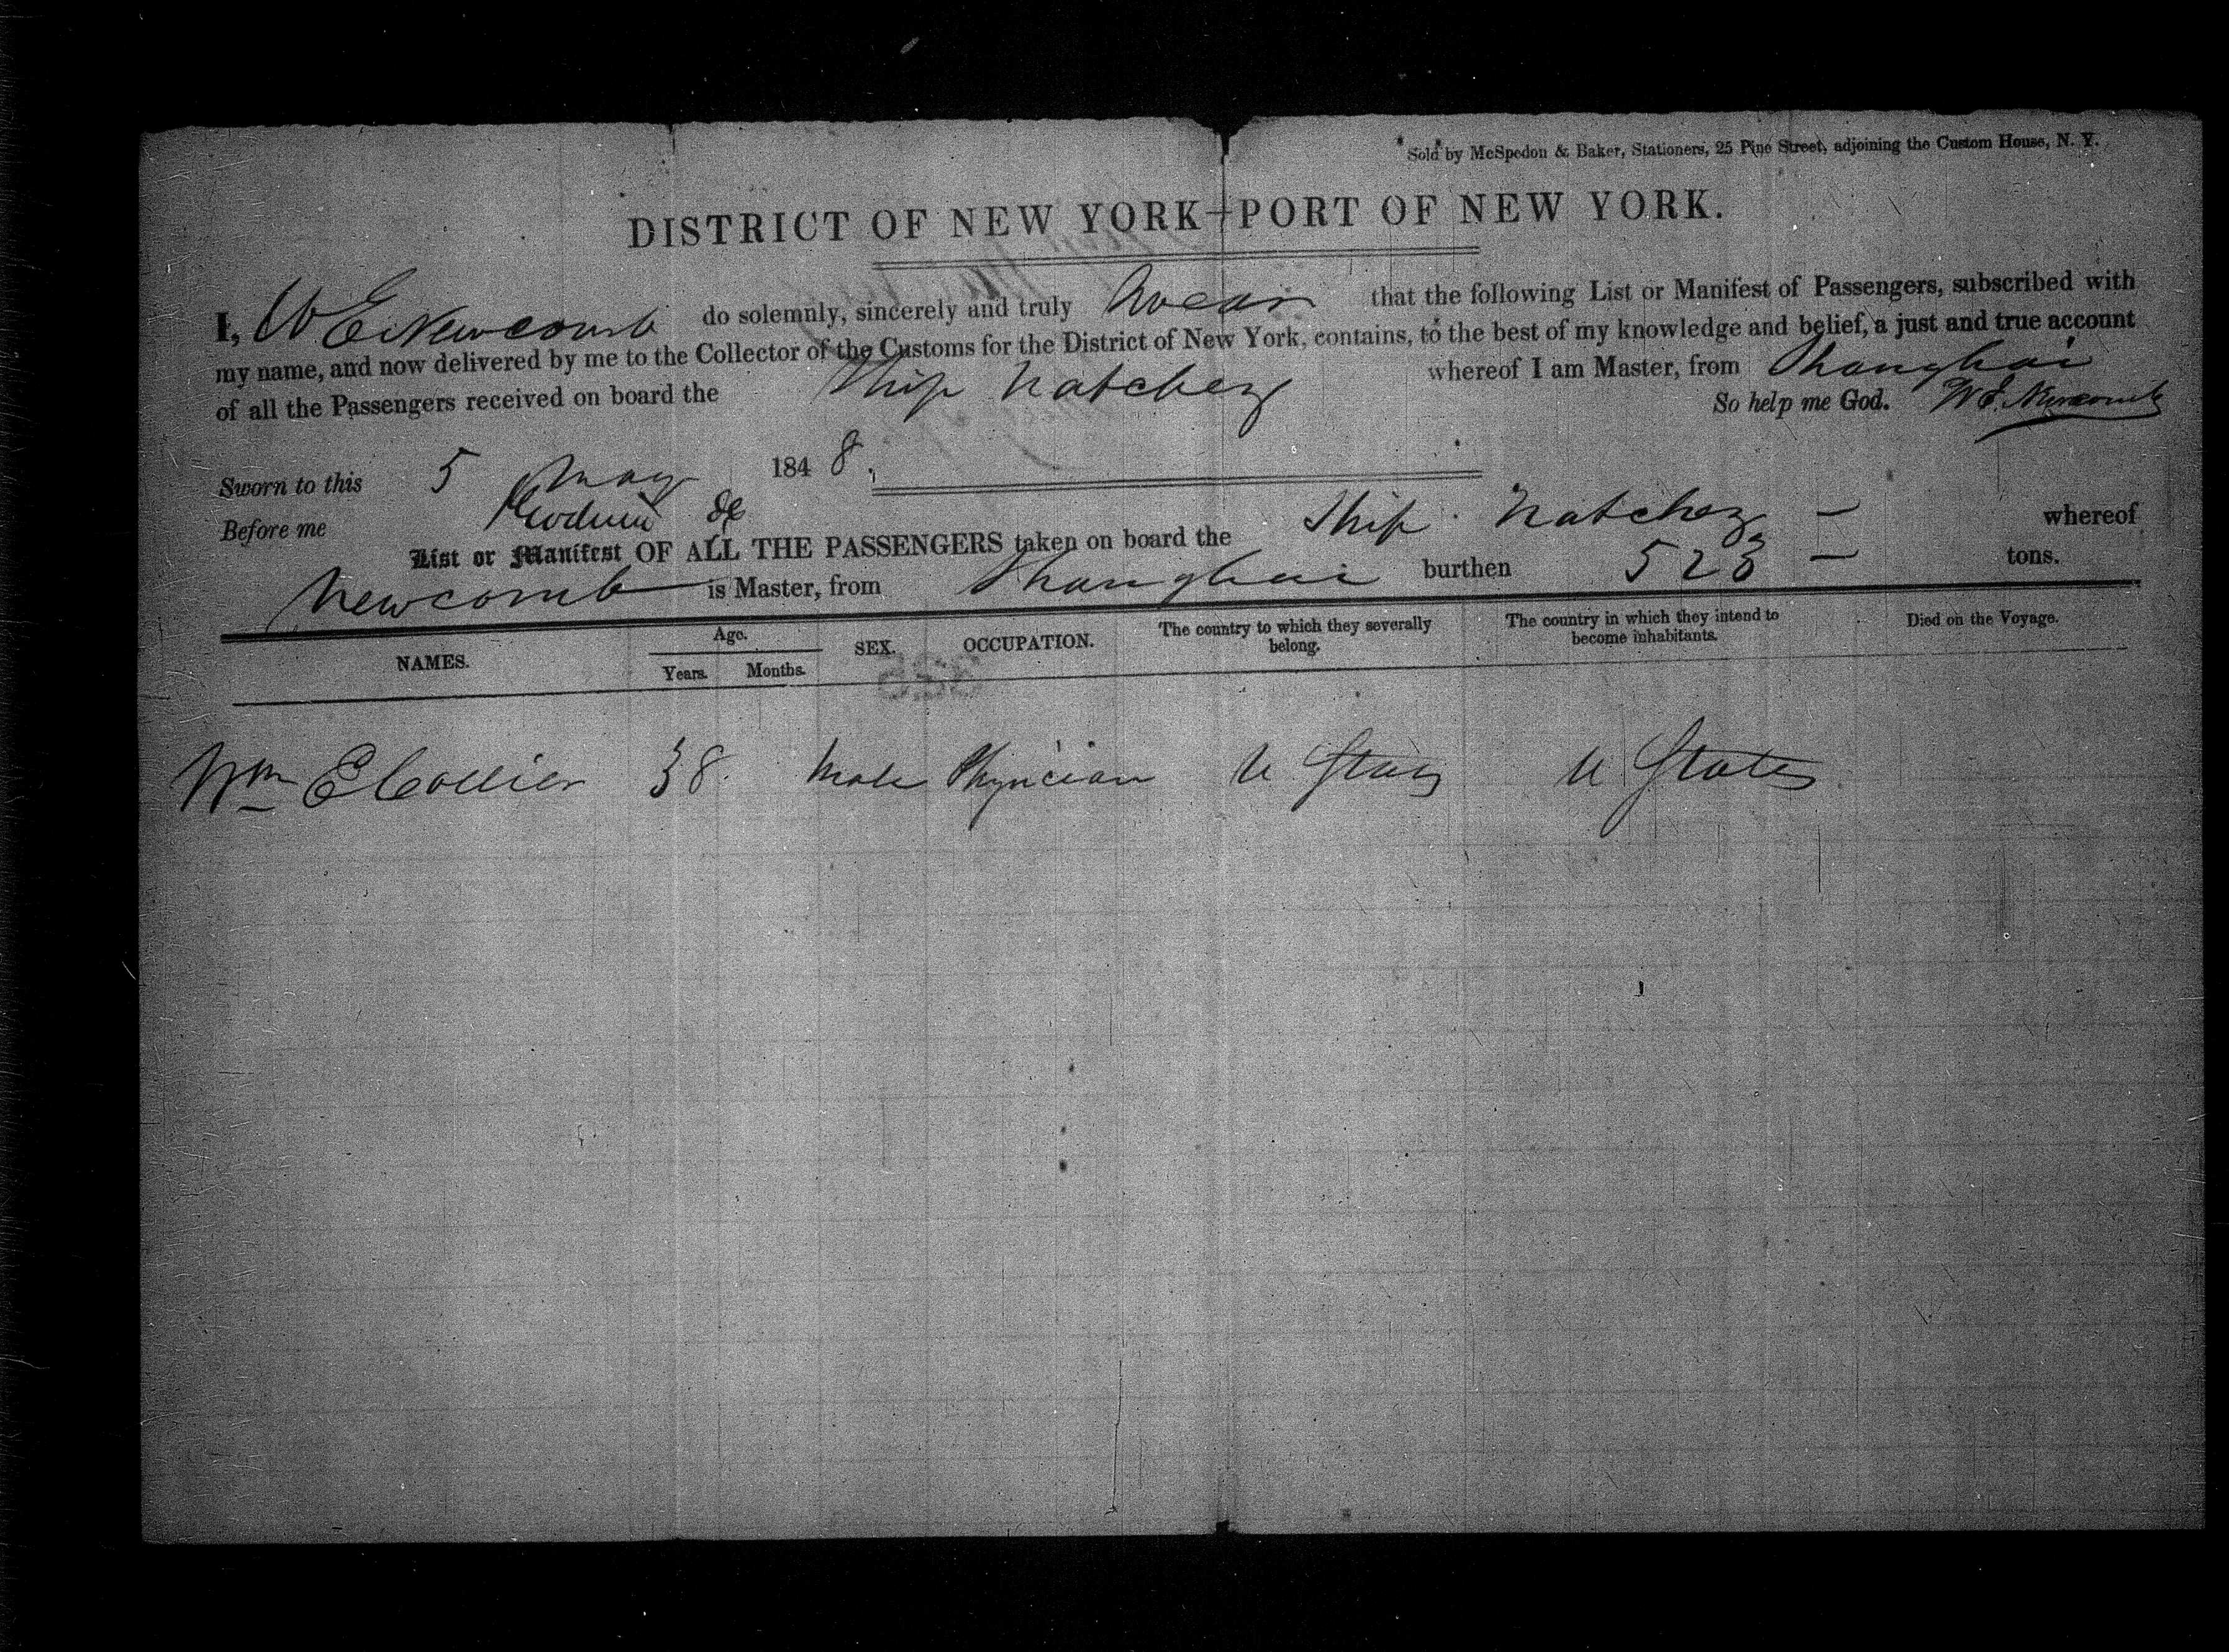 Sold by McSpedon & Baker, Stationers, 25 Pine Street, adjoining the Custom House, N. Y.
DISTRICT OF NEW YORK—PORT OF NEW YORK.
I, W E Newcomb do solemnly, sincerely and truly swear that the following List or Manifest of Passengers, subscribed with
my name, and now delivered by me to the Collector of the Customs for the District of New York, contains, to the best of my knowledge and belief, a just and true account
of all the Passengers received on board the Ship Natchez whereof I am Master, from Shanghai
So help me God. W E. Newcomb
Sworn to this 5 May 1848.
Before me
List or Manifest OF ALL THE PASSENGERS taken on board the Ship Natchez — whereof
Newcomb is Master, from Shanghai burthen 523 — tons.
NAMES. Age. Years. Months. SEX. OCCUPATION. The country to which they severally belong. The country in which they intend to become inhabitants. Died on the Voyage.
Wm E Collier 38 Male Physician U States U States